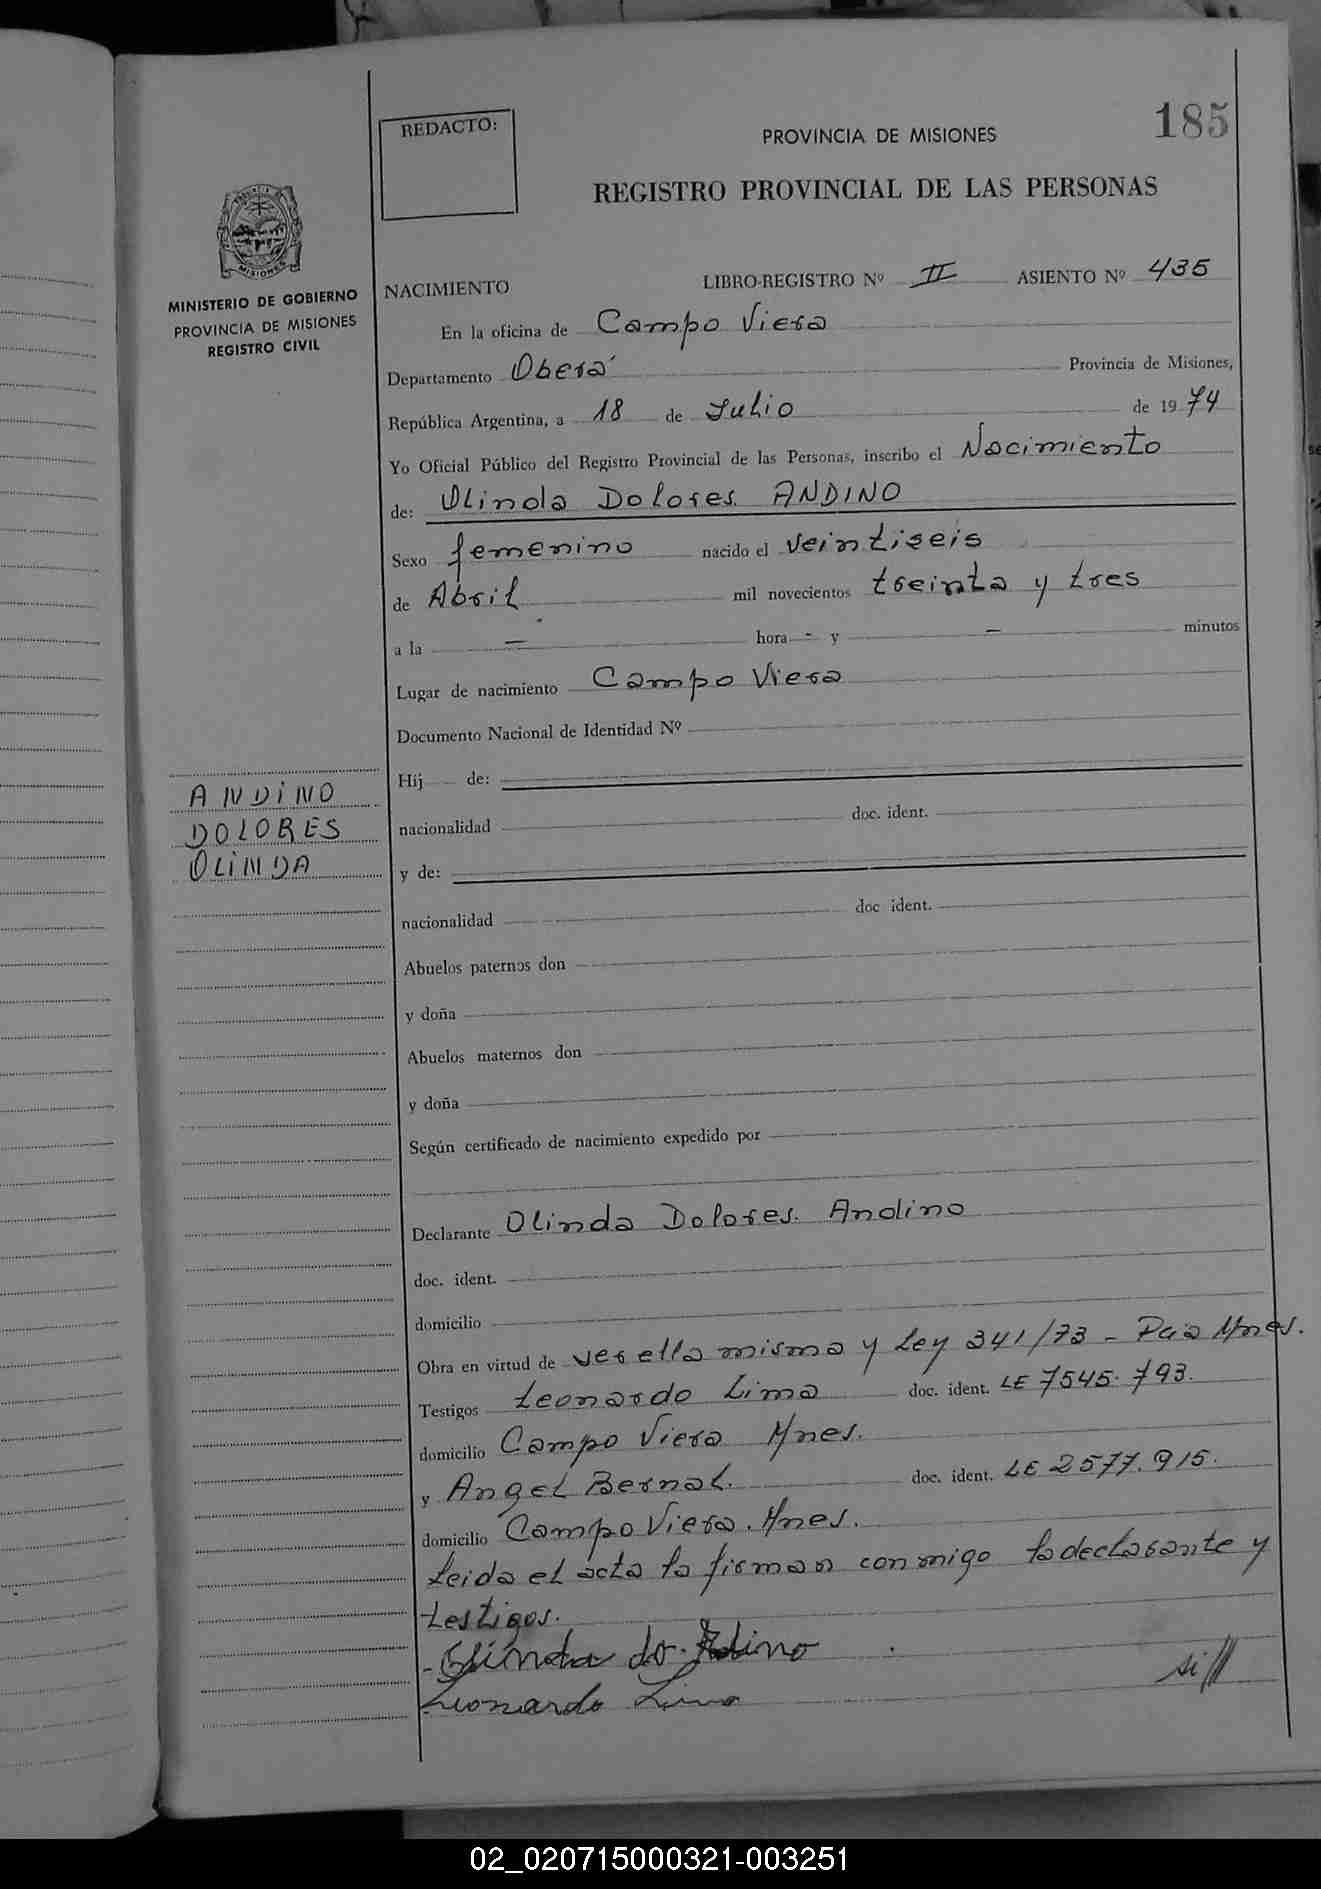 185
REDACTO:
PROVINCIA DE MISIONES
REGISTRO PROVINCIAL DE LAS PERSONAS
MISIONES
MINISTERIO DE GOBIERNO
PROVINCIA DE MISIONES
REGISTRO CIVIL
NACIMIENTO LIBRO-REGISTRO Nº II ASIENTO Nº 435
En la oficina de Campo Viera
Departamento Oberá Provincia de Misiones,
República Argentina, a 18 de Julio de 1974
Yo Oficial Público del Registro Provincial de las Personas, inscribo el Nacimiento
de: Olinda Dolores. ANDINO
Sexo femenino nacido el veintiseis
de Abril mil novecientos treinta y tres
a la — hora - y — minutos
Lugar de nacimiento Campo Viera
Documento Nacional de Identidad Nº
Hij de:
nacionalidad doc. ident.
y de:
nacionalidad doc ident.
Abuelos paternos don
y doña
Abuelos maternos don
y doña
Según certificado de nacimiento expedido por
ANDINO
DOLORES
OLINDA
Declarante Olinda Dolores. Andino
doc. ident.
domicilio
Obra en virtud de ser ella misma y Ley 341/73 - Pcia Mnes.
Testigos Leonardo Lima doc. ident. LE 7545.793.
domicilio Campo Viera Mnes.
y Angel Bernal. doc. ident. LE 2577.915.
domicilio Campo Viera. Mnes.
Leida el acta la firman conmigo la declarante y
testigos.
- Olinda do. Andino
Leonardo Lima
si//
02_020715000321-003251